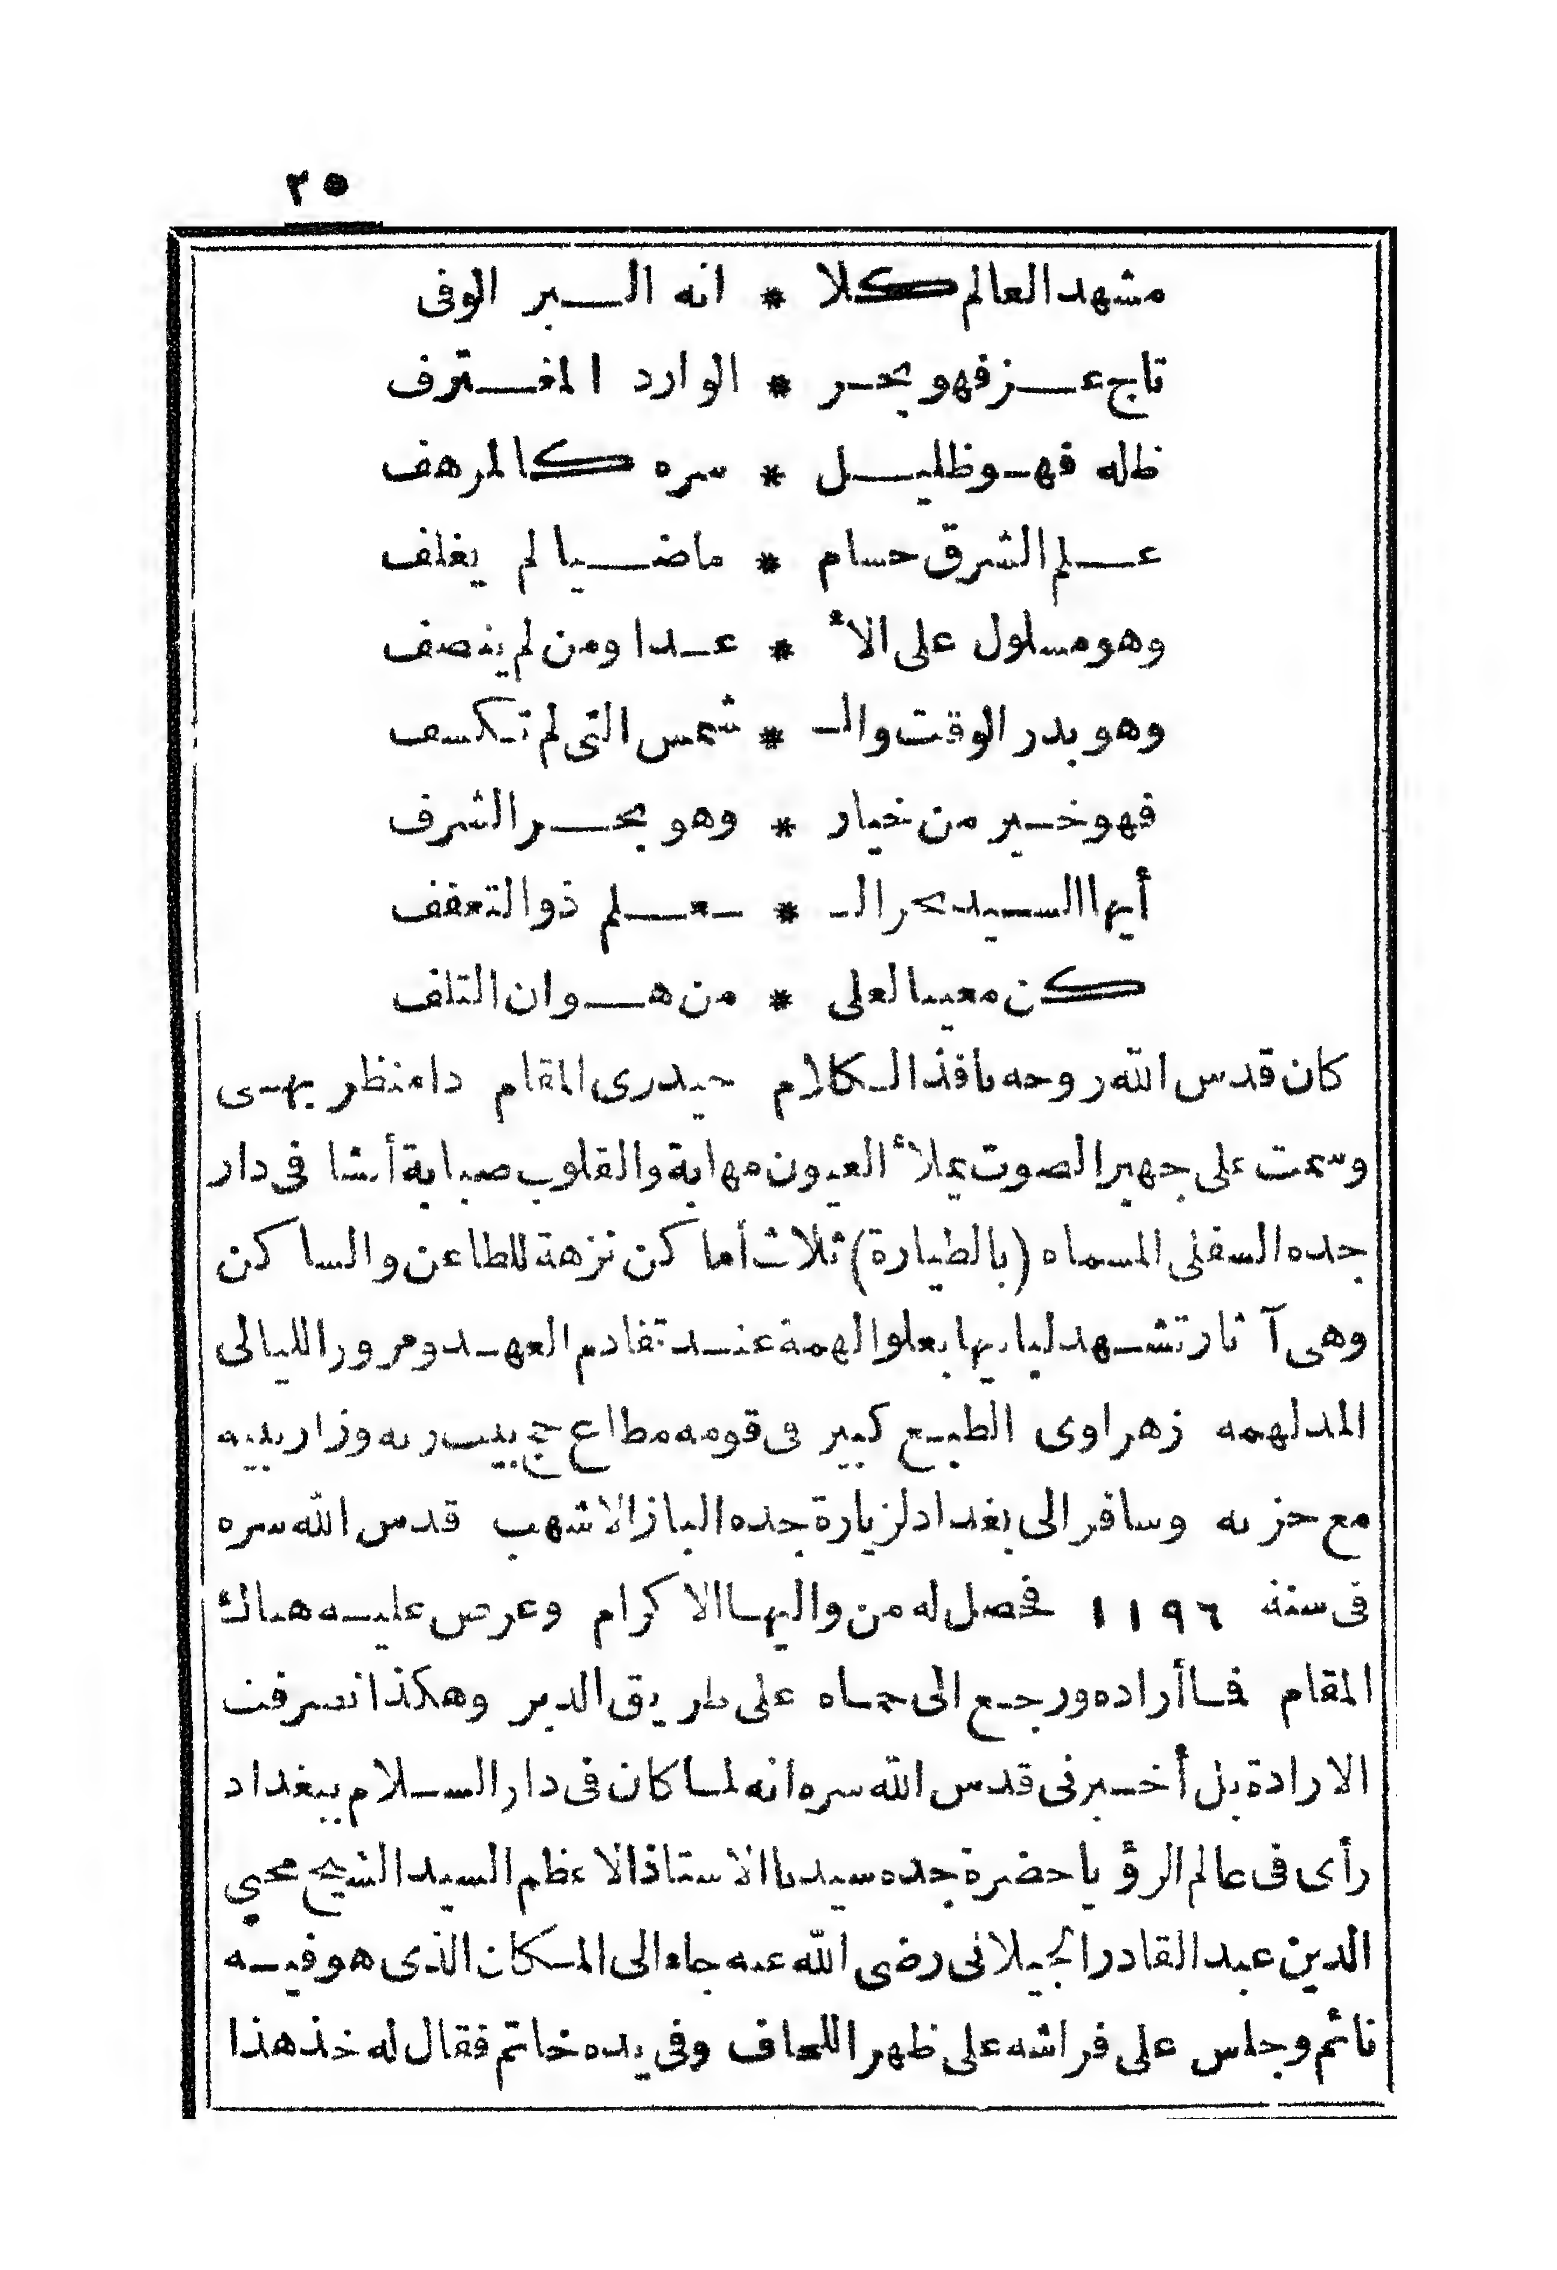 ٣٥
مشهد العالم كلا * انه البر الوفى
تاج عز فهو بحر * الوارد المغترف
ظله فهو ظليل * سره كالمرهف
علم الشرق حسام * ماضيا لم يغلف
وهو مسلول على الأ * عدا ومن لم ينصف
وهو بدر الوقت والـ * شمس التى لم تكسف
فهو خير من خيار * وهو بحر الشرف
أيها السيد بحر الـ * ـعلم ذو التعفف
كن معينا لعلى * من هوان التلف
كان قدس الله روحه نافذ الكلام حيدرى المقام ذا منظر بهى
وسمت على جهير الصوت يملأ العيون مهابة والقلوب صبابة أنشا فى دار
جده السفلى المسماه (بالطيارة) ثلاث أماكن نزهة للظاعن والساكن
وهى آثار تشهد لبانيها بعلو الهمة عند تقادم العهد ومرور الليالى
المدلهمه زهراوى الطبع كبير فى قومه مطاع حج بيت ربه وزار نبيه
مع حزبه وسافر الى بغداد لزيارة جده الباز الاشهب قدس الله سره
فى سنة ١١٩٦ فحصل له من واليها الاكرام وعرض عليه هناك
المقام فما أراده ورجع الى حماه على طريق الدير وهكذا انصرفت
الارادة بل أخبرنى قدس الله سره انه لما كان فى دار السلام ببغداد
رأى فى عالم الرؤيا حضرة جده سيدنا الاستاذ الاعظم السيد الشيخ محيي
الدين عبد القادر الجيلانى رضى الله عنه جاء الى المكان الذى هو فيه
نائم وجلس على فراشه على ظهر اللحاف وفى يده خاتم فقال له خذ هذا